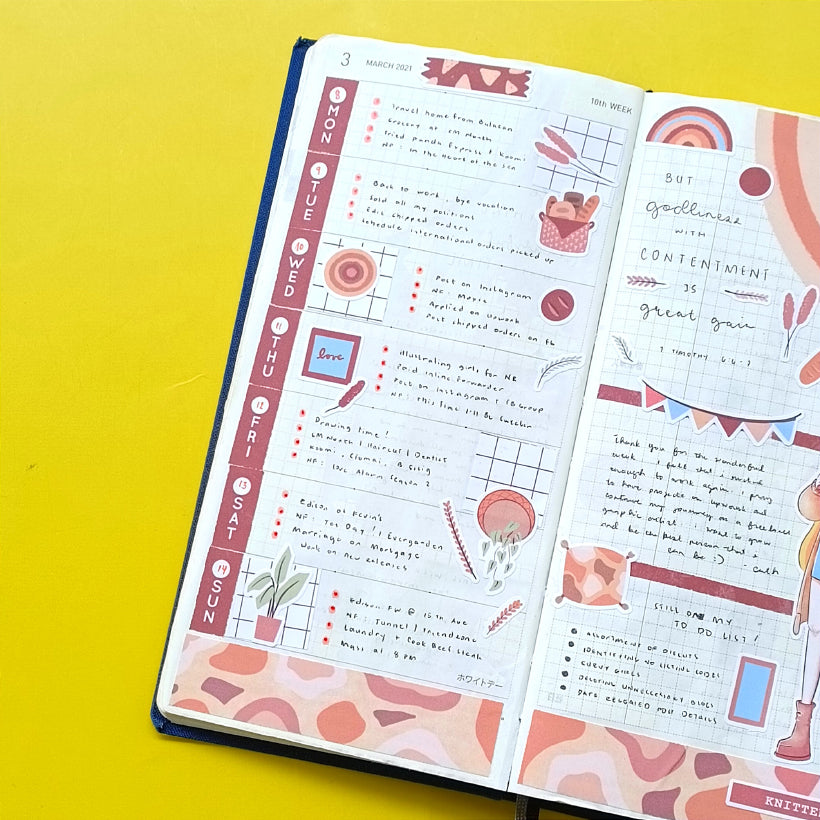 3 MARCH 2021
10th WEEK
8 MON
Travel home from Bulacan
Grocery at SM North
Tried Panda Express + Koomi
NF: In the Heart of the Sea
9 TUE
Back to work, bye vacation
Sold all my positions
Edit shipped orders
Schedule international orders picked up
10 WED
Post on Instagram
NF: Moxie
Applied on Upwork
Post shipped orders on FB
11 THU
love
Illustrating girls for NR
Paid Inline Forwarder
Post on Instagram + FB Group
NF: This Time I'll Be
12 FRI
Drawing time!
SM North | Haircut | Dentist
Koomi,
NF: Alarm Season 2
13 SAT
Edison at Kevin's
NF: Yes Day! | Evergarden
Marriage or Mortgage
Work on new
14 SUN
Edison: FW @ 15th Ave
NF: Tunnel |
Laundry + Cook Beef Steak
Mass at 8 PM
ホワイトデー
BUT
godliness
WITH
CONTENTMENT
IS
great gain
1 TIMOTHY 6:6-7
Thank you for the wonderful
week. I feel that I
enough to work again. I pray
to have projects on upwork and
continue my journey as a freelance
graphic artist. I want to grow
and be the best person that I
can be :)
STILL ON MY
TO DO LIST!
ASSORTMENT OF
IDENTIFYING NO LISTING CODES
CURVY GIRLS
DELETING UNNECESSARY
FOR DETAILS
KNITTE